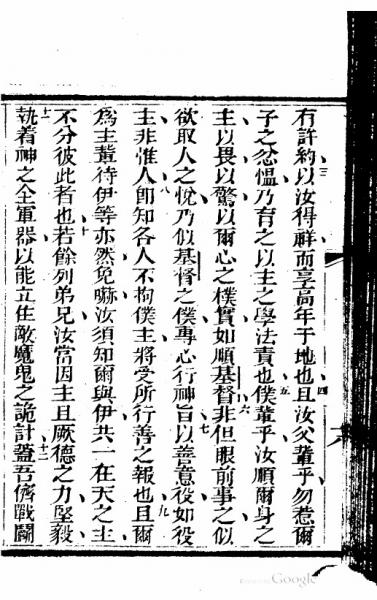 有許約以汝得祥而享高年于地也且汝父輩乎勿惹爾
子之忿慍乃育之以主之學法責也僕輩乎汝順爾身之
主以畏以驚以爾心之樸實如順基督非但眼前事之似
欲取人之悅乃似基督之僕專心行神旨以善意役如役
主非惟人卽知各人不拘僕主將受所行善之報也且爾
為主輩待伊等亦然免嚇汝須知爾與伊共一在天之主
不分彼此者也若餘列弟兄汝當因主且厥德之力堅毅
執着神之全軍器以能立住敵魔鬼之詭計蓋吾儕戰鬬
三
四
五
六
七
八
九
十
十一
十二
Google